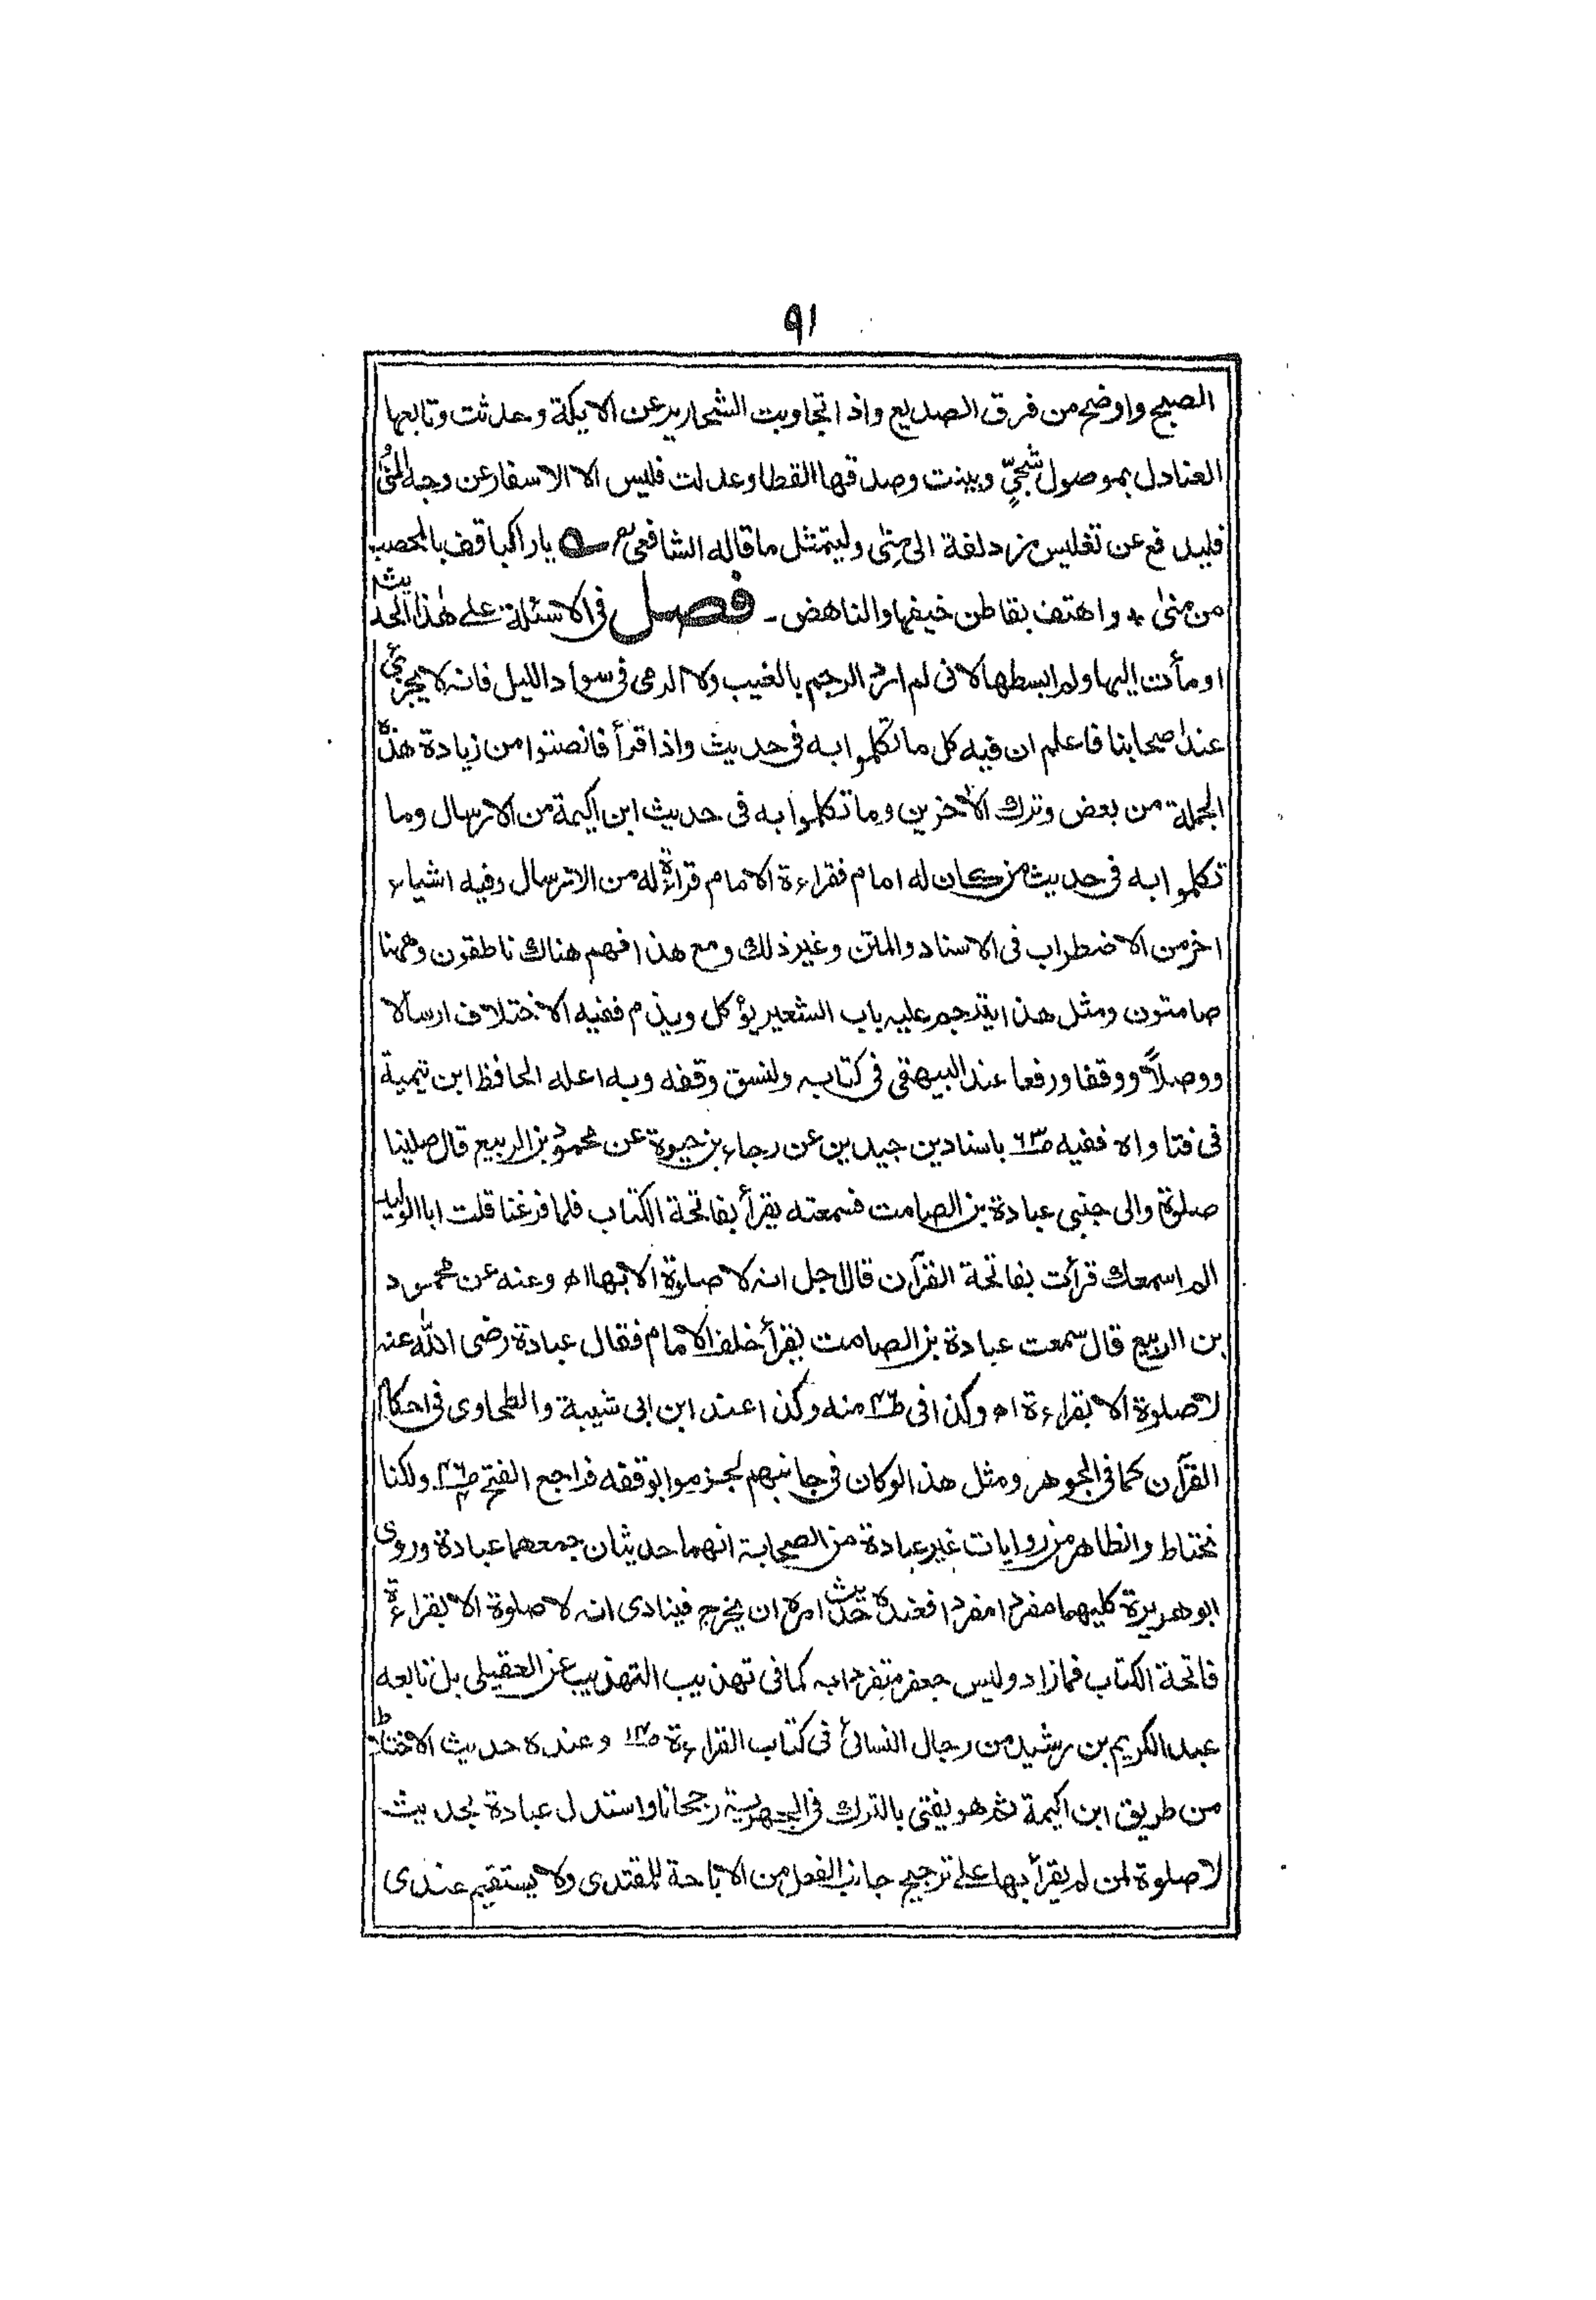 ٩١
الصبح واوضح من فرق الصديع واذا تجاوبت الشحارير عن الايكة وحدثت وتابعها
العنادل بموصول شجيٍّ وبينت وصدقها القطا وعدلت فليس الا الاسفار عن وجه المُنىٰ
فليدفع عن تغليس مزدلفة الى مِنٰى وليتمثل ما قاله الشافعىؒ ؎ يا راكبا قف بالمحصب
من منىٰ + واهتف بقاطن خيفها والناهض ـ فصل فى الاسئلة علے هٰذا الحديث
اومأت اليها ولم ابسطها لانى لم ارد الرجم بالغيب ولا الرمى فى سواد الليل فانه لا يجزئ
عند اصحابنا فاعلم ان فيه كل ما تكلموا به فى حديث واذا قرأ فانصتوا من زيادة هذه
الجملة من بعض وترك الاٰخرين وما تكلموا به فى حديث ابن اكيمة من الارسال وما
تكلموا به فى حديث من كان له امام فقراءة الامام قراءة له من الارسال وفيه اشياء
اخر من الاضطراب فى الاسناد والمتن وغير ذلك ومع هذا فهم هناك ناطقون وههنا
صامتون ومثل هذا يترجم عليه باب الشعير يؤكل ويذم ففيه الاختلاف ارسالا
ووصلاً ووقفا ورفعا عند البيهقى فى كتابه ولنسق وقفه وبه اعله الحافظ ابن تيمية
فى فتاواه ففيه صـ٦٣ باسنادين جيدين عن رجاء بن حيوة عن محمود بن الربيع قال صلينا
صلوة والى جنبى عبادة بن الصامت فسمعته يقرأ بفاتحة الكتاب فلما فرغنا قلت ابا الوليد
الم اسمعك قرأت بفاتحة القرآن قال اجل انه لا صلوة الا بها اه وعنه عن محمود
بن الربيع قال سمعت عبادة بن الصامت يقرأ خلف الامام فقال عبادة رضى الله عنه
لا صلوة الا بقراءة اه وكذا فى منه وكذا عند ابن ابى شيبة والطحاوى فى احكام
القرآن كما فى الجوهر ومثل هذا لوكان فى جانبهم لجزموا بوقفه فراجع الفتح ولكنا
نحتاط والظاهر من روايات غير عبادة من الصحابة انهما حديثان جمعهما عبادة وروى
ابوهريرة كليهما مفردا مفردا فعنده حديث امره ان يخرج فينادى انه لا صلوة الا بقراءة
فاتحة الكتاب فمازاد وليس جعفر متفردا به كما فى تهذيب التهذيب عن العقيلى بل تابعه
عبد الكريم بن رشيد من رجال النسائى فى كتاب القراءة وعنده حديث الاختلاط
من طريق ابن اكيمة ثم هو يفتى بالترك فى الجهرية رجحانا واستدل عبادة بحديث
لا صلوة لمن لم يقرأ بها علے ترجيح جانب الفعل من الاباحة للمقتدى ولا يستقيم عندى